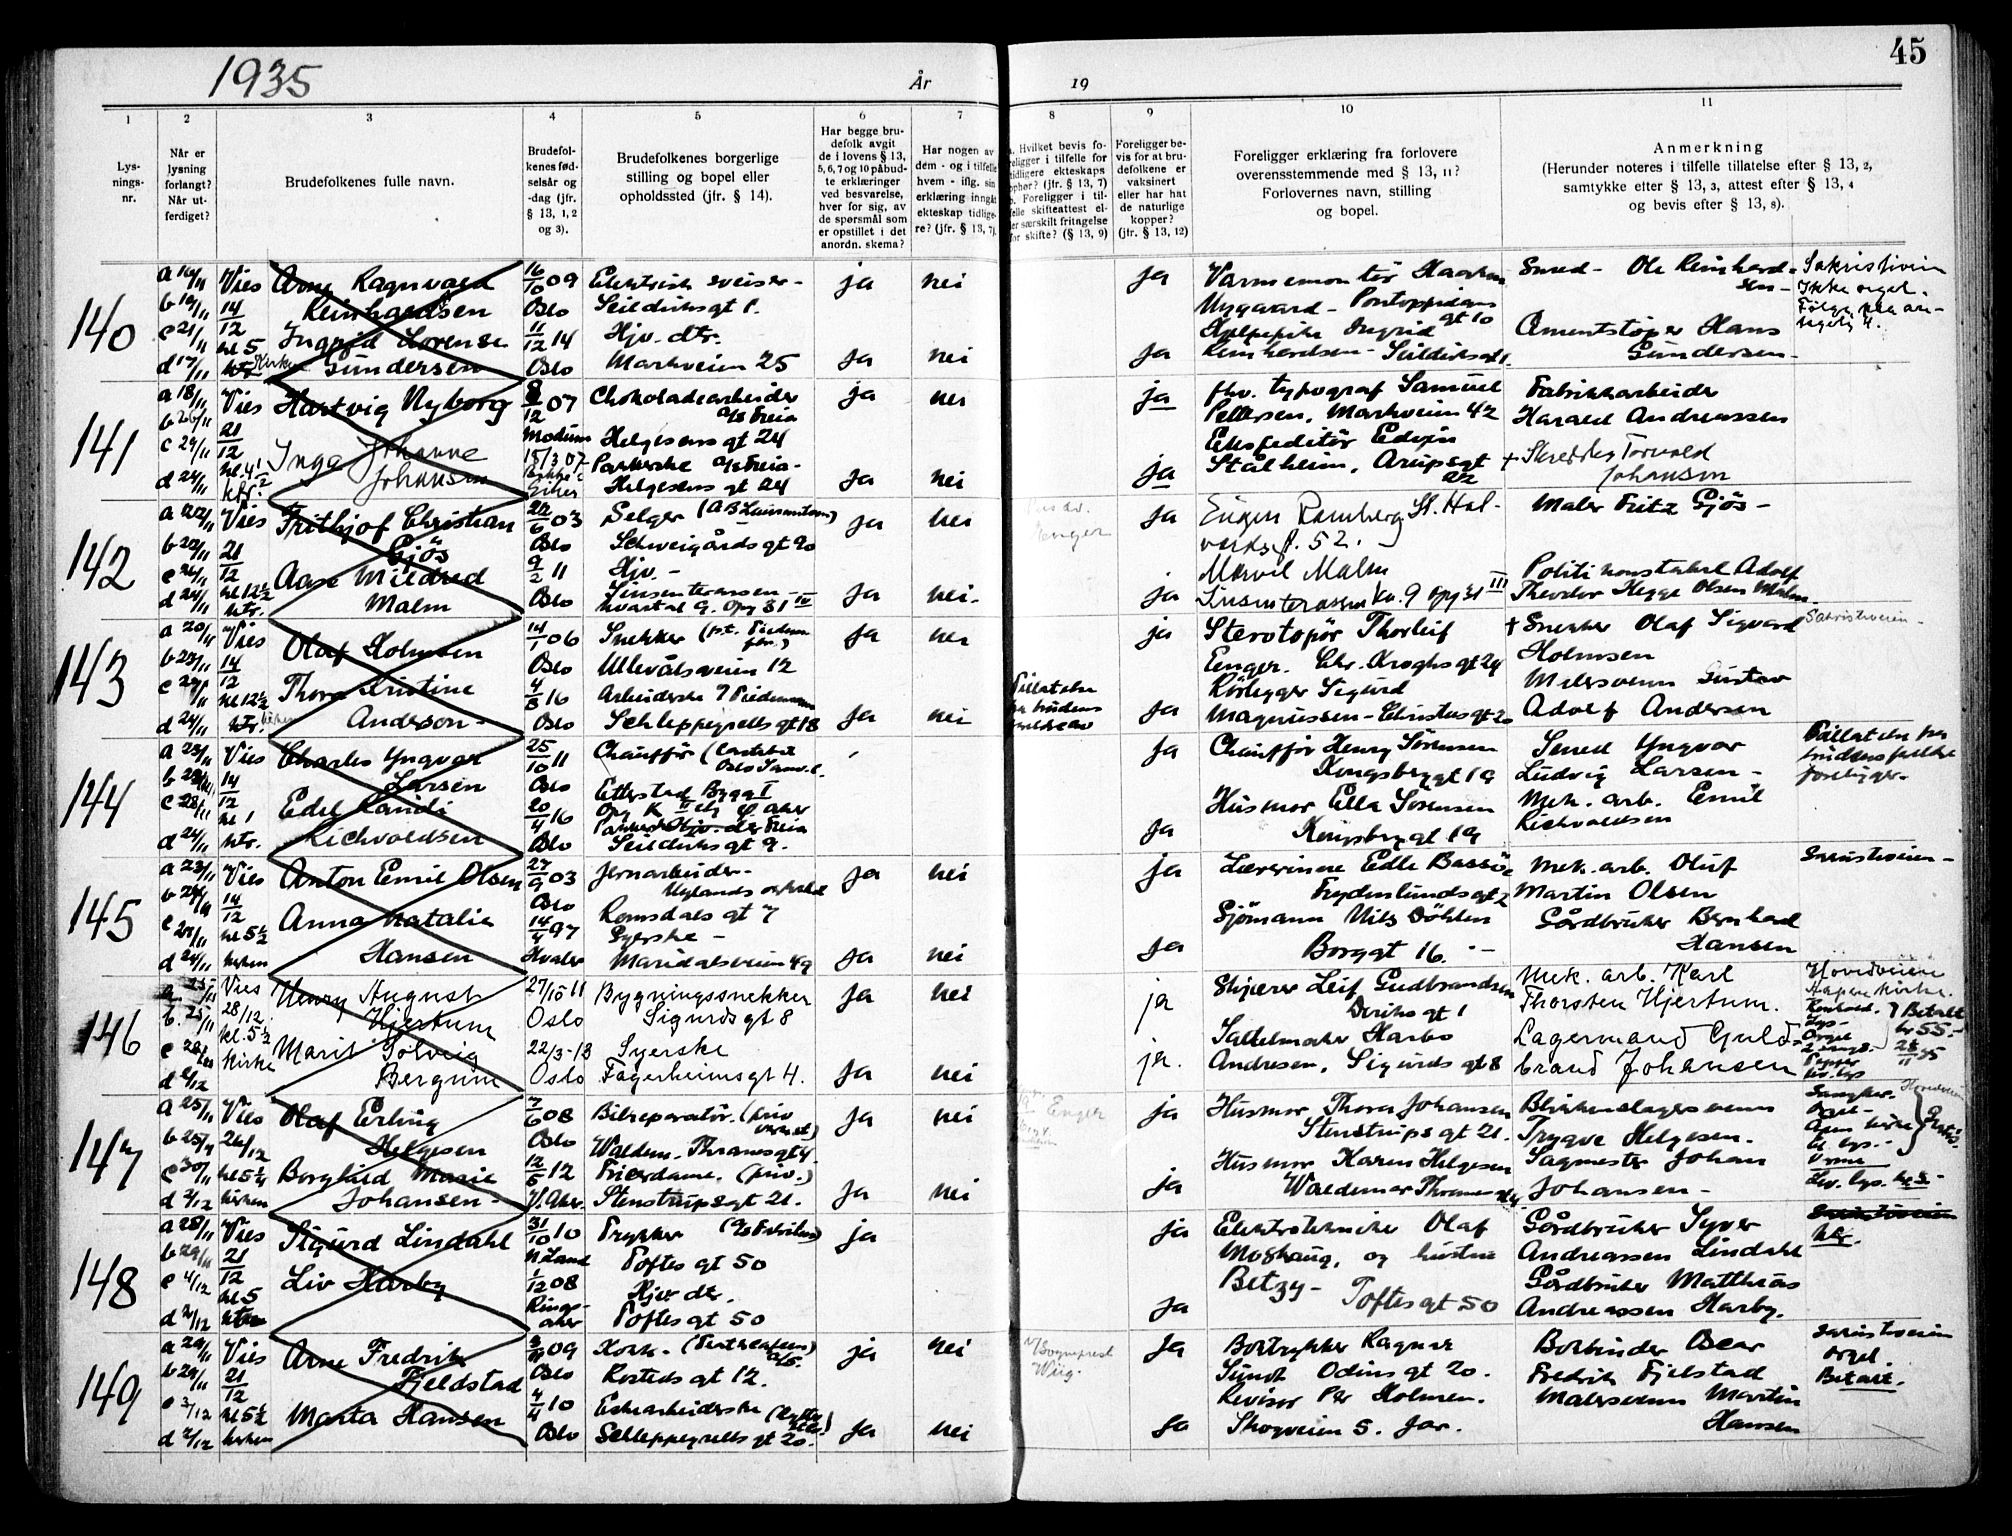 45
1935
År
19
1
2
3
4
5
6
7
8
9
10
11
Lys-
nings-
nr.
Når er
lysning
forlangt?
Når ut-
ferdiget?
Brudefolkenes fulle navn.
Brudefol-
kenes fød-
selsår og
-dag (jfr.
§ 13, 1, 2
og 3).
Brudefolkenes borgerlige
stilling og bopel eller
opholdssted (jfr. § 14).
Har begge bru-
defolk avgit
de i lovens § 13,
5, 6, 7 og 10 påbud-
te erklæringer
ved besvarelse,
hver for sig, av
de spørsmål som
er opstillet i det
anordn. skema?
Har nogen av
dem - og i tilfelle
hvem - iflg. sin
erklæring inngåt
ekteskap tidlige-
re? (jfr. § 13, 7).
Hvilket bevis fo-
religger i tilfelle for
tidligere ekteskaps
ophør? (jfr. § 13, 7)
Foreligger i til-
felle skifteattest el-
ler særskilt fritagelse
for skifte? (§ 13, 9)
Foreligger be-
vis for at bru-
defolkene er
vaksinert
eller har hat
de naturlige
kopper?
(jfr. § 13, 12)
Foreligger erklæring fra forlovere
overensstemmende med § 13, 11?
Forlovernes navn, stilling
og bopel.
Anmerkning
(Herunder noteres i tilfelle tillatelse efter § 13, 2,
samtykke efter § 13, 3, attest efter § 13, 4
og bevis efter § 13, 8).
140
a 16/11 Vies
b 19/11 14/12
c 21/11 kl 5
d 17/11 Kirken
Arne Ragnvald
Reinhardsen
Ingrid Lorense
Gundersen
16/10 09
Oslo
11/12 14
Oslo
Elektrisk sveiser-
Seilduksgt 1.
Hjv. dtr.
Markveien 25
ja nei
ja nei
ja
ja
Varmemontør Haakon
Nygaard - Pontoppidans
gt 10
Ingrid
Reinhardsen - Seilduksgt 1.
Smed - Ole Reinhard-
sen -
Hans
Gundersen -
Sakristiveien
Ikke orgel.
141
a 18/11 Vies
b 26/11 21/12
c 29/11 kl. 4 1/2
d 24/11 ktr.
Hartvig Nyborg
Inga Johanne
Johansen
8/12 07
Modum
15/3 07
Eiker
Chokoladearbeider
A/s Freia
Helgesens gt 24
Pakkerske A/s Freia -
Helgesens gt 24
ja nei
ja nei
ja
ja
fhv. typograf Samuel
Pettersen, Markveien 42
Ekspeditør Edvin
Stålheim, Arupsgt
22
Fabrikkarbeider
Harald Andreassen
+ Skredder Torvald
Johansen
142
a 22/11 Vies
b 22/11 21/12
c 26/11 kl 12 1/2
d 24/11 ktr.
Frithjof Christian
Gjøs
Aase Mildred
Malm
22/6 03
Oslo
9/2 11
Oslo
Selger
Schweigårdsgt 90
Hjv. -
kvartal 9. Opg 31 IV
ja nei
ja nei-
Unger
ja
ja
Eugen Ramberg, St. Hal-
vardsgt. 52.
Marvel Malm
kv. 9 opg 31 III
Maler Fritz Gjøs -
Politikonstabel Adolf
Theodor Hegge Olsen Malm.
143
a 20/11 Vies
b 25/11 14/12
c 27/11 kl 12 1/2
d 24/11 ktr. kirken
Olaf Holmsen
Thora Kristine
Anderson -
14/1 06
Oslo
4/3 16
Oslo
Snekker
Ullevålsveien 12
Arbeiderske
Schleppegrells gt 18
ja nei
ja nei
Tillatelse
fra brudens
foreldre
ja
ja
Stereotopør Thorleif
Enger. Chr. Kroghs gt 29
Rørlegger Sigurd
Magnussen - Christies gt 20
+ Snekker Olaf Sigvard
Holmsen
Malersvenn Gustav
Adolf Andersen
Sakristiveien -
144
a 23/11 Vies
14/12
c 28/11 kl 1
d 24/11 ktr.
Charles Yngvar
Larsen
Edel Randi
Richvoldsen
25/10 11
Oslo
20/4 16
Oslo
Chauffør
Etterstad Bygg I
Seilduksgt 9.
ja
ja
Chauffør Henry Sørensen
Kongsberggt 19
Husmor Ella Sørensen
Kongsberg gt 19
Smed Yngvar
Ludvig Larsen -
Mek. arb. Emil
Richvoldsen
Tillatelse fra
brudens foreldre
foreligger.
145
a 23/11 Vies
14/12
kl 5 1/2
d 24/11 kirken
Anton Emil Olsen
Anna Natalie
Hansen
27/9 03
Oslo
14/4 97
Hvaler
Jernarbeider -
Nylands verksted
Romsdals gt 7
Syerske -
Maridalsveien 49
ja nei
ja nei
ja
ja
Lærerinne Edle Bassøe
Frydenlundsgt 2
Sjømann Nils Døhlen
Borggt 16. -
Mek. arb. Oluf
Martin Olsen
Gårdbruker Bernhard
Hansen
146
a 25/11 Vies
b. 25/11 28/12
kl. 5 1/2
kirke
d 2/12
Henry August
Hjertum
Marit Solveig
Bergum
27/10 11
Oslo
22/3-13
Oslo
Bygningssnekker
Sigurds gt 8
Syerske
Fagerheimsgt 4.
ja nei
ja nei
ja
ja.
Skjærer Leif Gudbrandsen
gt 1
Sadelmaker Harbo
Andresen, Sigurds gt 8
Mek. arb. Karl
Thorsten Hjertum.
Lagermand Guld-
brand Johansen
Hovedveien
Åpen kirke.
Lys -
Orgel
Betalt
kr 55.-
147
a 25/11 Vies
b 25/11 26/12
c 30/11 kl 5 1/4
d 2/12 kirken
Olaf Erling
Helgesen
Borghild Marie
Johansen -
7/6 08
Oslo
12/5 12
V. Aker.
Bilreparatør. (priv
verkst)
Waldem. Thranesgt 4
Frierdame. (priv.)
Stenstrupsgt 21.
ja nei
ja nei
Enger
ja
ja
Husmor Thora Johansen
Stenstrups gt 21.
Husmor Karen Helgesen
Waldemar Thranes
Blikkenslagersvenn
Trygve Helgesen.
Sagmester Johan
Johansen -
Orgel -
Åpen kirke
148
a 28/11 Vies
b 29/11 21/12
c 4/12 kl 5
d 2/12
Sigurd Lindahl
Liv Harby
31/10 10
N. Land
1/12 08
Rings-
aker
Trykker
Toftes gt 50
Hjv. dtr.
Toftes gt 50
ja
ja
ja
Elektrotekniker Olaf
Moshaug, og hustru
Betzy - Toftes gt 50
Gårdbruker Syver
Andreassen Lindahl
Gårdbruker Matthias
Andreassen Harby.
149
a 29/11 Vies
b 29/11 21/12
c 3/12 kl 5 1/2
d 2/12 kirken
Arne Fredrik
Fjeldstad
Marta Hansen
09
Oslo
4/4 10
Oslo
Kokk - (Teatercafeen)
A/S.
Rosteds gt 12.
Eskearbeiderske
Schleppegrells gt 20.
ja nei
ja nei
v/ Sogneprest
Wiig.
ja
ja
Boktrykker Ragnar
Sundt Odins gt 20.
Revisor Per Holmen.
Skogveien 5. Jar.
Bokbinder Oscar
Fredrik Fjelstad
Malersvenn Martin
Hansen
Sakristiveien
orgel.
Betalt.